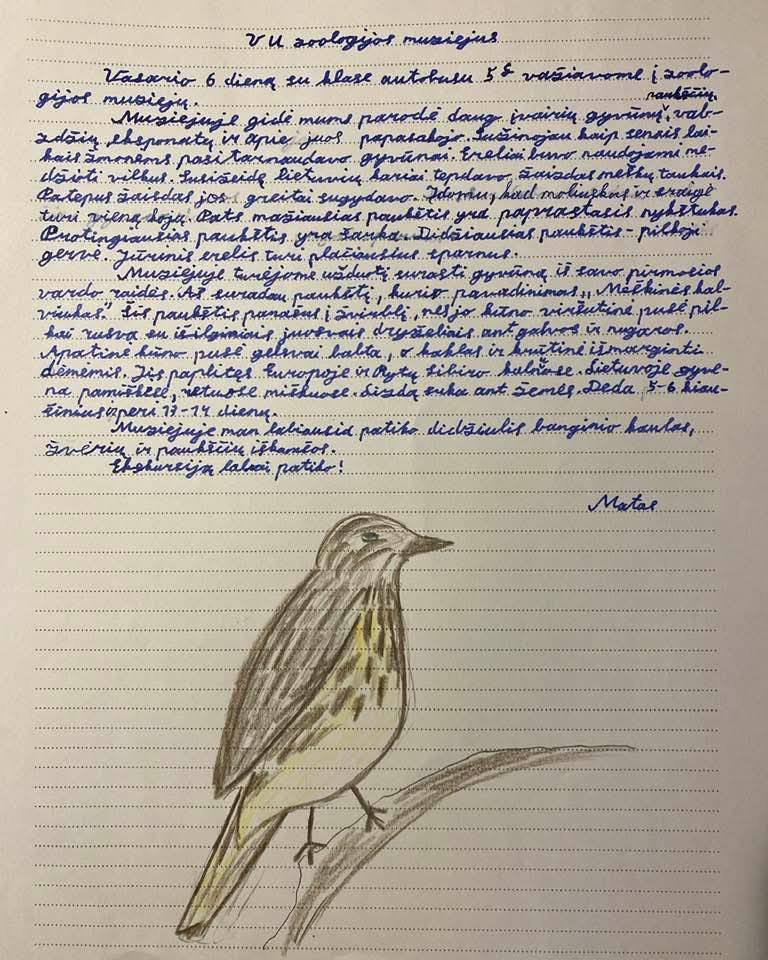 VU zoologijos muziejus
Vasario 6 dieną su klase autobusu 5G važiavome į zoolo-
gijos muziejų.
paukščių,
Muziejuje gidė mums parodė daug įvairių gyvūnų, vab-
zdžių, eksponatų ir apie juos papasakojo. Sužinojau kaip senais lai-
kais žmonėms pasitarnaudavo gyvūnai. Ereliai buvo naudojami me-
džioti vilkus. Susižeidę lietuvių kariai tepdavo žaizdas meškų taukais.
Patepus žaizdas jos greitai sugydavo. Įdomu, kad moliuskas ir sraigė
turi vieną koją. Pats mažiausias paukštis yra paprastasis nykštukas.
Protingiausias paukštis yra šarka. Didžiausias paukštis - pilkoji
gervė. Jūrinis erelis turi plačiausius sparnus.
Muziejuje turėjome užduotį surasti gyvūną iš savo pirmosios
vardo raidės. Aš suradau paukštį, kurio pavadinimas „Meškinės kal-
viukas". Šis paukštis panašus į žvirblį, nes jo kūno viršutinė pusė pil-
kai rusva su išilginiais juosvais dryželiais ant galvos ir nugaros.
Apatinė kūno pusė gelsvai balta, o kaklas ir krūtinė išmarginti
dėmėmis. Jis paplitęs Europoje ir Rytų Sibiro kalnuose. Lietuvoje gyve-
na pamiškėse, retuose miškuose. Lizdą suka ant žemės. Deda 5-6 kiau-
šinius, peri 13-14 dienų.
Muziejuje man labiausiai patiko didžiulis banginio kaulas,
žvėrių ir paukščių iškamšos.
Ekskursija labai patiko!
Matas